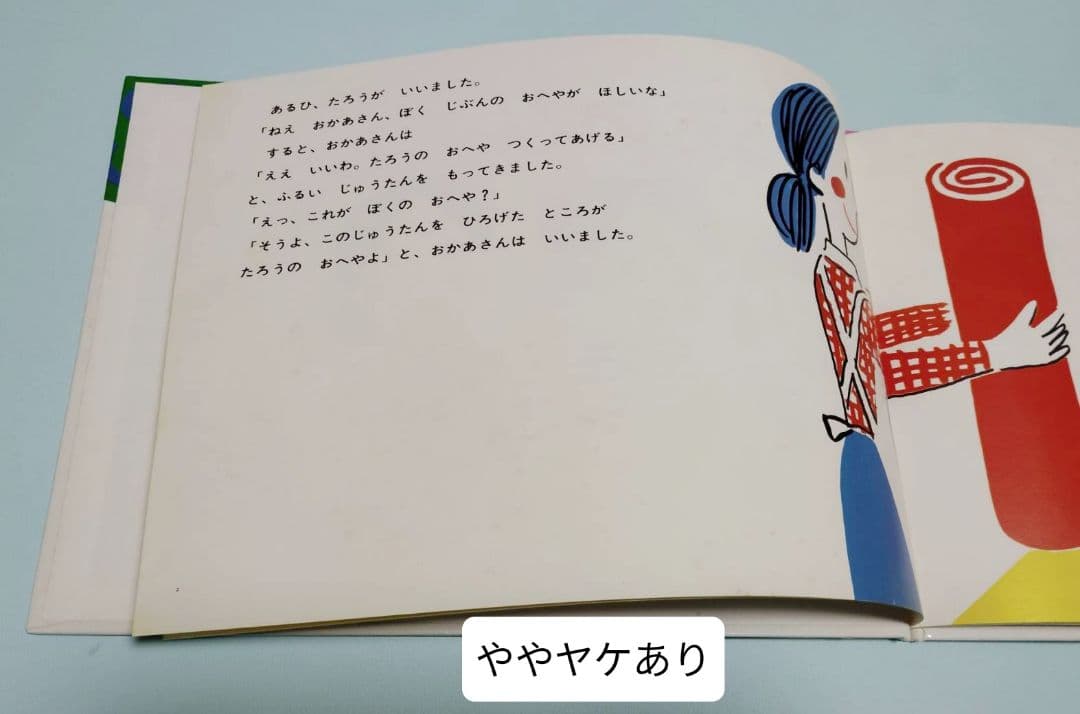 あるひ、たろうが　いいました。
「ねえ　おかあさん、ぼく　じぶんの　おへやが　ほしいな」
すると、おかあさんは
「ええ　いいわ。たろうの　おへや　つくってあげる」
と、ふるい　じゅうたんを　もってきました。
「えっ、これが　ぼくの　おへや？」
「そうよ、このじゅうたんを　ひろげた　ところが
たろうの　おへやよ」と、おかあさんは　いいました。
2
ややヤケあり